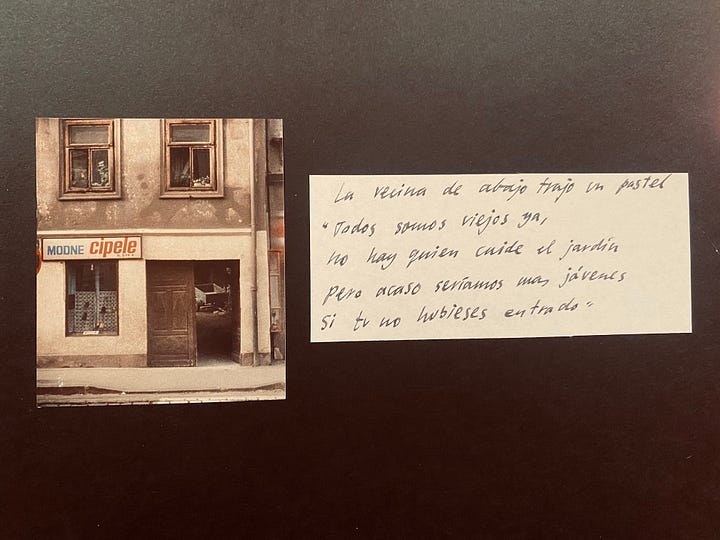 MODNE cipele
La vecina de abajo trajo un pastel
"Todos somos viejos ya,
no hay quien cuide el jardín
pero acaso seríamos mas jóvenes
Si tu no hubieses entrado"